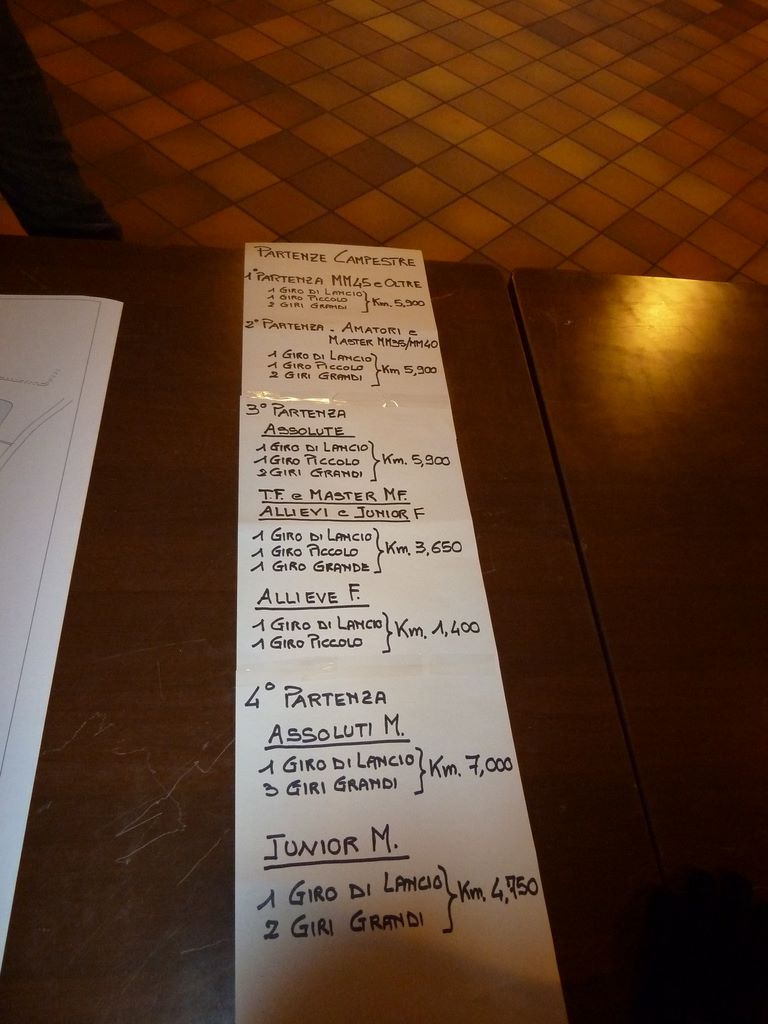 PARTENZE CAMPESTRE
1° PARTENZA MM45 e OLTRE
1 GIRO DI LANCIO
1 GIRO PICCOLO } Km. 5,900
2 GIRI GRANDI
2° PARTENZA - AMATORI e
MASTER MM35/MM40
1 GIRO DI LANCIO
1 GIRO PICCOLO } Km 5,900
2 GIRI GRANDI
3° PARTENZA
ASSOLUTE
1 GIRO DI LANCIO
1 GIRO PICCOLO } Km. 5,900
2 GIRI GRANDI
T.F. e MASTER MF.
ALLIEVI e JUNIOR F
1 GIRO DI LANCIO
1 GIRO PICCOLO } Km. 3,650
1 GIRO GRANDE
ALLIEVE F.
1 GIRO DI LANCIO } Km. 1,400
1 GIRO PICCOLO
4° PARTENZA
ASSOLUTI M.
1 GIRO DI LANCIO } Km. 7,000
3 GIRI GRANDI
JUNIOR M.
1 GIRO DI LANCIO } Km. 4,750
2 GIRI GRANDI